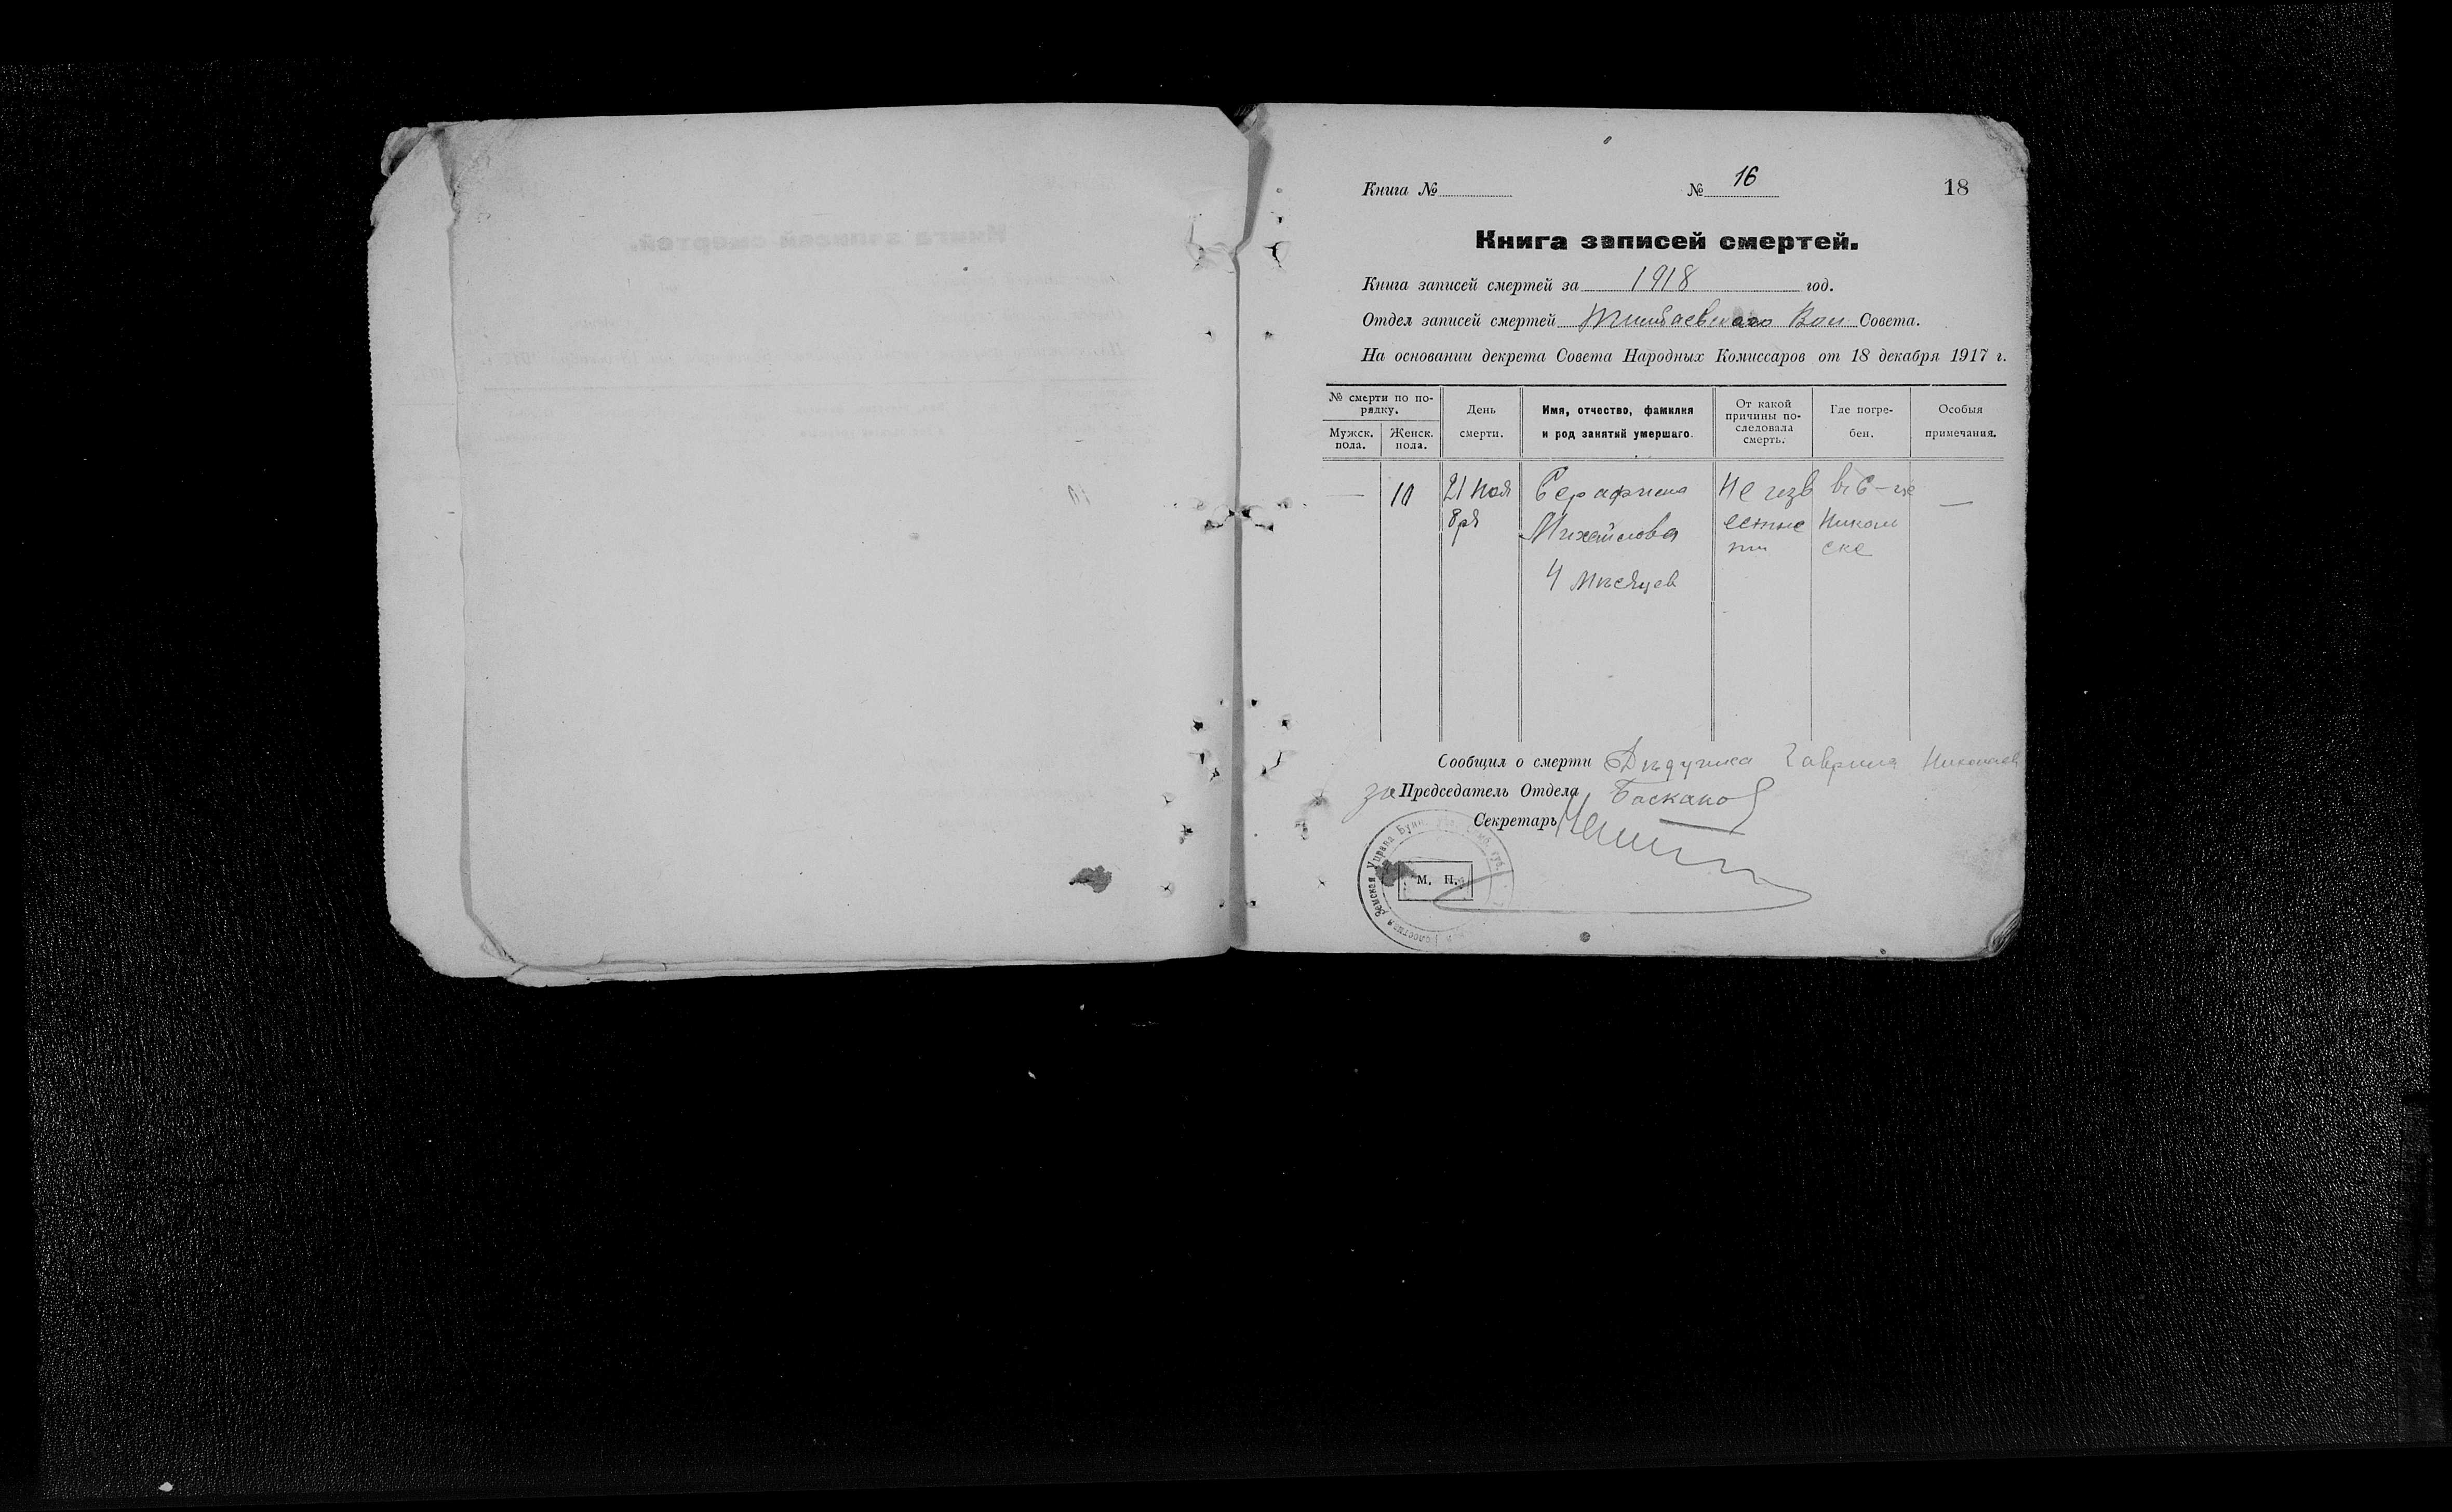 Книга № № 16 18
Книга записей смертей.
Книга записей смертей за 1918 год.
Отдел записей смертей Вол Совета.
На основании декрета Совета Народных Комиссаров от 18 декабря 1917 г.
№ смерти по по-
рядку.
Мужск.
пола.
Женск.
пола.
День
смерти.
Имя, отчество, фамилия
и род занятый умершаго.
От какой
причины по-
следовала
смерть.
Где погре-
бен.
Особыя
примечания.
— 10
21 Ноя
бря
Серафима
Михайлова
4 Мѣсяцев
Не изв
естные
Николь
ске
—
Сообщил о смерти Дѣдушка Гаврила Николаев
за Председатель Отдела Баскаков
Секретарь
М. П.
Земская Управа